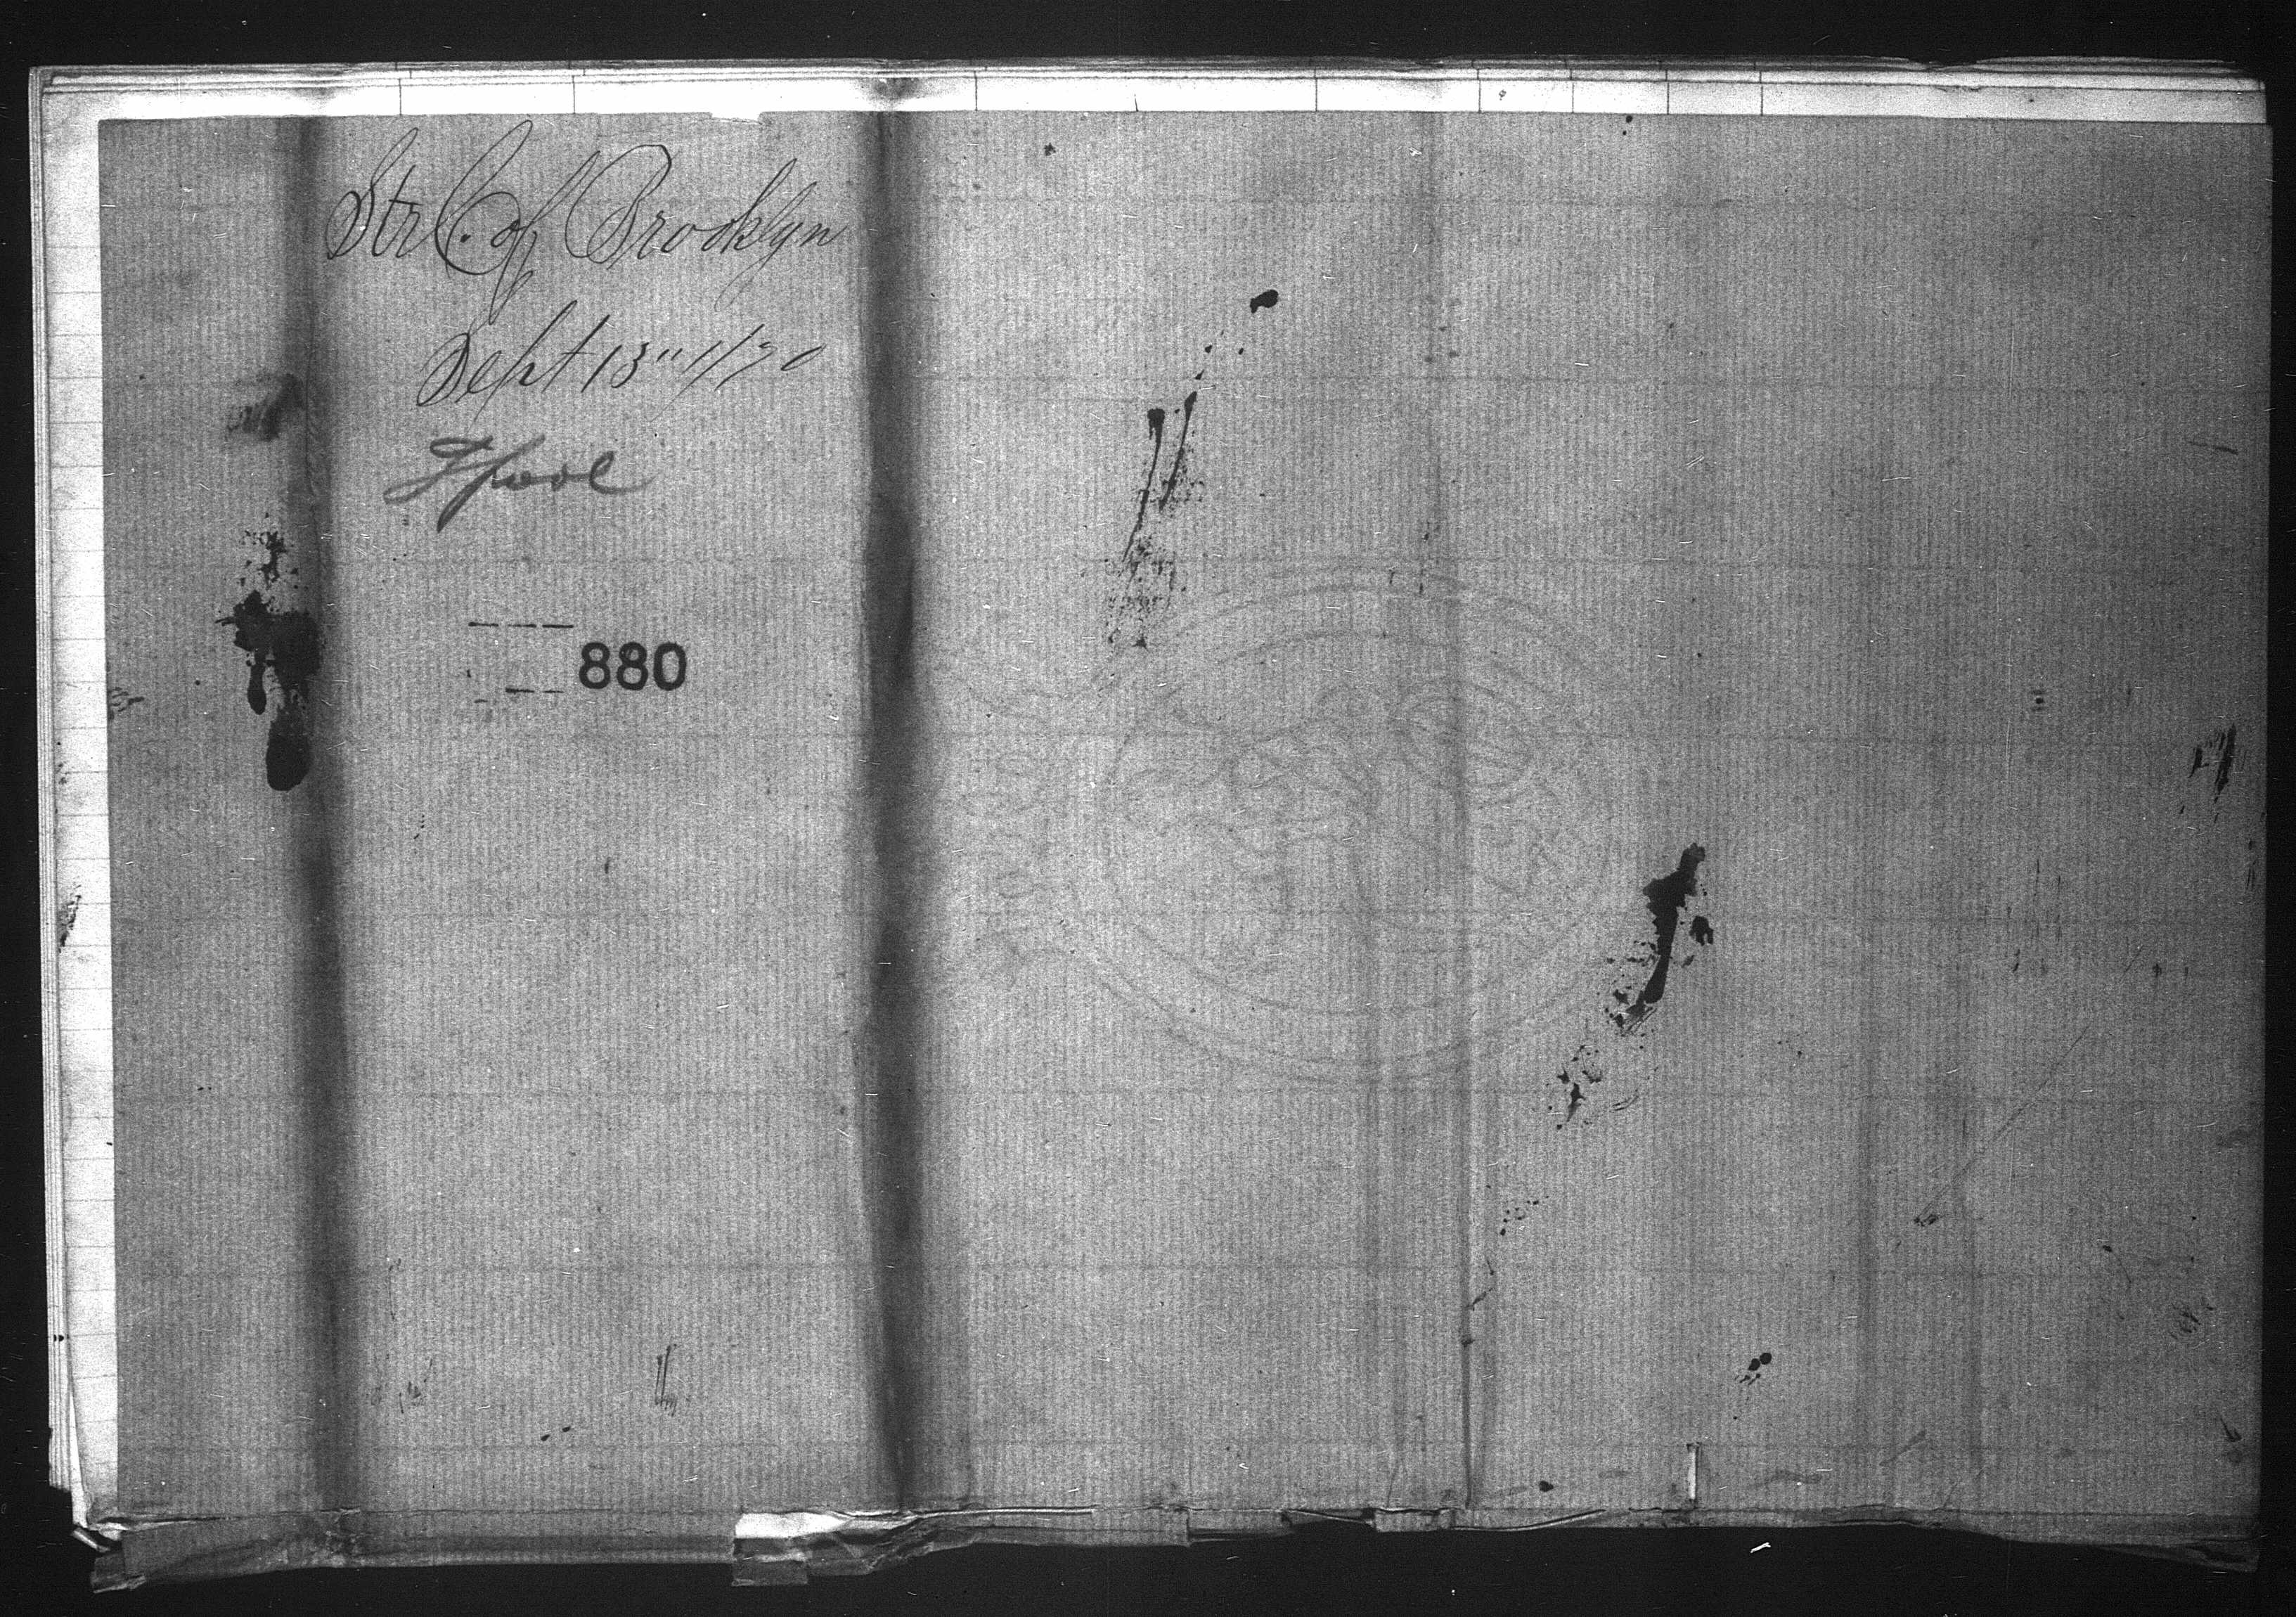 Str C. of Brooklyn
Sept 13" 1/70
Lpool
880